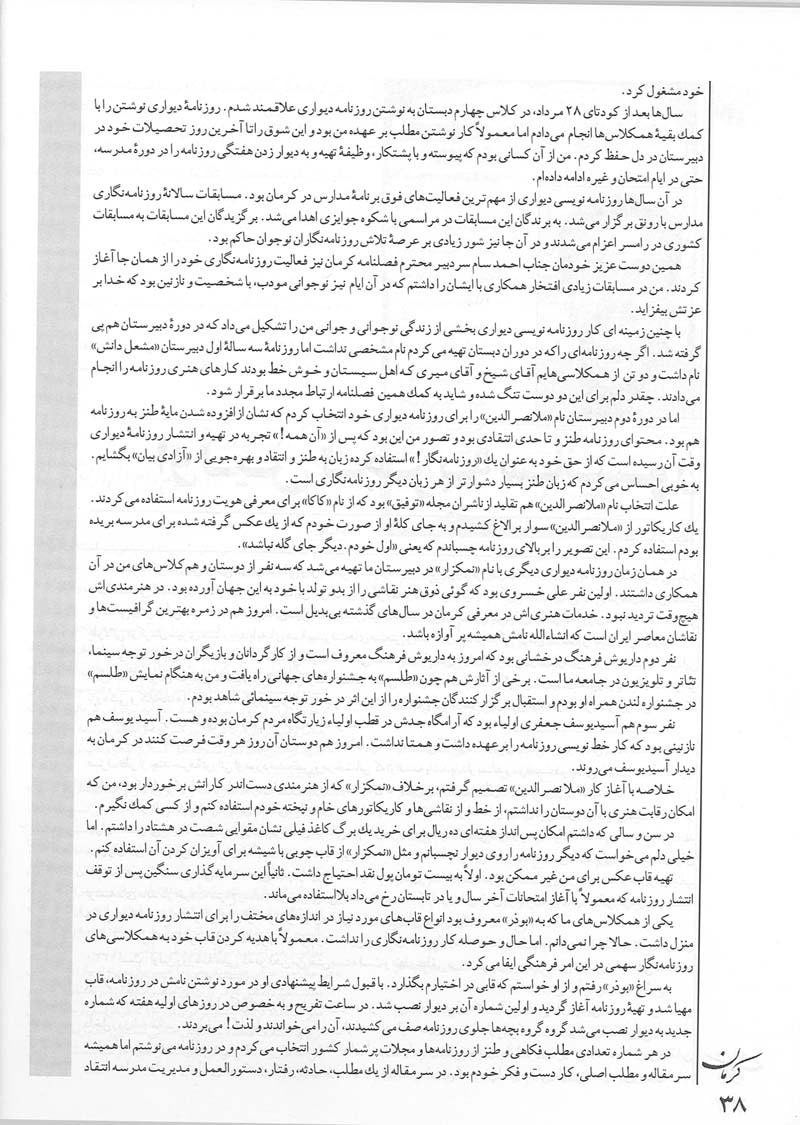 خود مشغول کرد.
سال‌ها بعد از کودتای ۲۸ مرداد، در کلاس چهارم دبستان به نوشتن روزنامه دیواری علاقمند شدم. روزنامهٔ دیواری نوشتن را با
کمک بقیهٔ همکلاس‌ها انجام می‌دادم اما معمولاً کار نوشتن مطلب بر عهده من بود و این شوق را تا آخرین روز تحصیلات خود در
دبیرستان در دل حفظ کردم. من از آن کسانی بودم که پیوسته و با پشتکار، وظیفهٔ تهیه و به دیوار زدن هفتگی روزنامه را در دورهٔ مدرسه،
حتی در ایام امتحان و غیره ادامه داده‌ام.
در آن سال‌ها روزنامه نویسی دیواری از مهم‌ترین فعالیت‌های فوق برنامهٔ مدارس در کرمان بود. مسابقات سالانهٔ روزنامه‌نگاری
مدارس با رونق برگزار می‌شد. به برندگان این مسابقات در مراسمی با شکوه جوایزی اهدا می‌شد. برگزیدگان این مسابقات به مسابقات
کشوری در رامسر اعزام می‌شدند و در آن جا نیز شور زیادی بر عرصهٔ تلاش روزنامه‌نگاران نوجوان حاکم بود.
همین دوست عزیز خودمان جناب احمد سام سردبیر محترم فصلنامه کرمان نیز فعالیت روزنامه‌نگاری خود را از همان جا آغاز
کردند. من در مسابقات زیادی افتخار همکاری با ایشان را داشتم که در آن ایام نیز نوجوانی مودب، با شخصیت و نازنین بود که خدا بر
عزتش بیفزاید.
با چنین زمینه ای کار روزنامه نویسی دیواری بخشی از زندگی نوجوانی و جوانی من را تشکیل می‌داد که در دورهٔ دبیرستان هم پی
گرفته شد. اگر چه روزنامه‌ای را که در دوران دبستان تهیه می‌کردم نام مشخصی نداشت اما روزنامهٔ سه سالهٔ اول دبیرستان «مشعل دانش»
نام داشت و دو تن از همکلاسی‌هایم آقای شیخ و آقای میری که اهل سیستان و خوش خط بودند کارهای هنری روزنامه را انجام
می‌دادند. چقدر دلم برای این دو دوست تنگ شده و شاید به کمک همین فصلنامه ارتباط مجدد ما برقرار شود.
اما در دورهٔ دوم دبیرستان نام «ملانصرالدین» را برای روزنامه دیواری خود انتخاب کردم که نشان از افزوده شدن مایهٔ طنز به روزنامه
هم بود. محتوای روزنامه طنز و تا حدی انتقادی بود و تصور من این بود که پس از «آن همه!» تجربه در تهیه و انتشار روزنامهٔ دیواری
وقت آن رسیده است که از حق خود به عنوان یک «روزنامه‌نگار!» استفاده کرده زبان به طنز و انتقاد و بهره‌جویی از «آزادی بیان» بگشایم.
به خوبی احساس می‌کردم که زبان طنز بسیار دشوارتر از هر زبان دیگر روزنامه‌نگاری است.
علت انتخاب نام «ملانصرالدین» هم تقلید از ناشران مجله «توفیق» بود که از نام «کاکا» برای معرفی هویت روزنامه استفاده می‌کردند.
یک کاریکاتور از «ملانصرالدین» سوار بر الاغ کشیدم و به جای کلهٔ او از صورت خودم که از یک عکس گرفته شده برای مدرسه بریده
بودم استفاده کردم. این تصویر را بر بالای روزنامه چسباندم که یعنی «اول خودم. دیگر جای گله نباشد».
در همان زمان روزنامه دیواری دیگری با نام «نمکزار» در دبیرستان ما تهیه می‌شد که سه نفر از دوستان و هم کلاس‌های من در آن
همکاری داشتند. اولین نفر علی خسروی بود که گوئی ذوق هنر نقاشی را از بدو تولد با خود به این جهان آورده بود. در هنرمندی‌اش
هیچ‌وقت تردید نبود. خدمات هنری‌اش در معرفی کرمان در سال‌های گذشته بی‌بدیل است. امروز هم در زمره بهترین گرافیست‌ها و
نقاشان معاصر ایران است که انشاءالله نامش همیشه پر آوازه باشد.
نفر دوم داریوش فرهنگ درخشانی بود که امروز به داریوش فرهنگ معروف است و از کارگردانان و بازیگران در خور توجه سینما،
تئاتر و تلویزیون در جامعه ما است. برخی از آثارش هم چون «طلسم» به جشنواره‌های جهانی راه یافت و من به هنگام نمایش «طلسم»
در جشنواره لندن همراه او بودم و استقبال برگزار کنندگان جشنواره را از این اثر در خور توجه سینمائی شاهد بودم.
نفر سوم هم آسیدیوسف جعفری اولیاء بود که آرامگاه جدش در قطب اولیاء زیارتگاه مردم کرمان بوده و هست. آسیدیوسف هم
نازنینی بود که کار خط نویسی روزنامه را بر عهده داشت و همتا نداشت. امروز هم دوستان آن روز هر وقت فرصت کنند در کرمان به
دیدار آسیدیوسف می‌روند.
خلاصه با آغاز کار «ملا نصرالدین» تصمیم گرفتم، برخلاف «نمکزار» که از هنرمندی دست‌اندر کارانش برخوردار بود، من که
امکان رقابت هنری با آن دوستان را نداشتم، از خط و از نقاشی‌ها و کاریکاتورهای خام و نپخته خودم استفاده کنم و از کسی کمک نگیرم.
در سن و سالی که داشتم امکان پس‌انداز هفته‌ای ده ریال برای خرید یک برگ کاغذ فیلی نشان مقوایی شصت در هشتاد را داشتم. اما
خیلی دلم می‌خواست که دیگر روزنامه را روی دیوار نچسبانم و مثل «نمکزار» از قاب چوبی با شیشه برای آویزان کردن آن استفاده کنم.
تهیه قاب عکس برای من غیر ممکن بود. اولاً به بیست تومان پول نقد احتیاج داشت. ثانیاً این سرمایه‌گذاری سنگین پس از توقف
انتشار روزنامه که معمولاً با آغاز امتحانات آخر سال و یا در تابستان رخ می‌داد بلا استفاده می‌ماند.
یکی از همکلاس‌های ما که به «بوذر» معروف بود انواع قاب‌های مورد نیاز در اندازه‌های مختف را برای انتشار روزنامه دیواری در
منزل داشت. حالا چرا نمی‌دانم. اما حال و حوصله کار روزنامه‌نگاری را نداشت. معمولاً با هدیه کردن قاب خود به همکلاسی‌های
روزنامه‌نگار سهمی در این امر فرهنگی ایفا می‌کرد.
به سراغ «بوذر» رفتم و از او خواستم که قابی در اختیارم بگذارد. با قبول شرایط پیشنهادی او در مورد نوشتن نامش در روزنامه، قاب
مهیا شد و تهیهٔ روزنامه آغاز گردید و اولین شماره آن بر دیوار نصب شد. در ساعت تفریح و به خصوص در روزهای اولیه هفته که شماره
جدید به دیوار نصب می‌شد گروه گروه بچه‌ها جلوی روزنامه صف می‌کشیدند، آن را می‌خواندند و لذت! می‌بردند.
در هر شماره تعدادی مطلب فکاهی و طنز از روزنامه‌ها و مجلات پرشمار کشور انتخاب می‌کردم و در روزنامه می‌نوشتم اما همیشه
سر مقاله و مطلب اصلی، کار دست و فکر خودم بود. در سر مقاله از یک مطلب، حادثه، رفتار، دستورالعمل و مدیریت مدرسه انتقاد
کرمان
۳۸